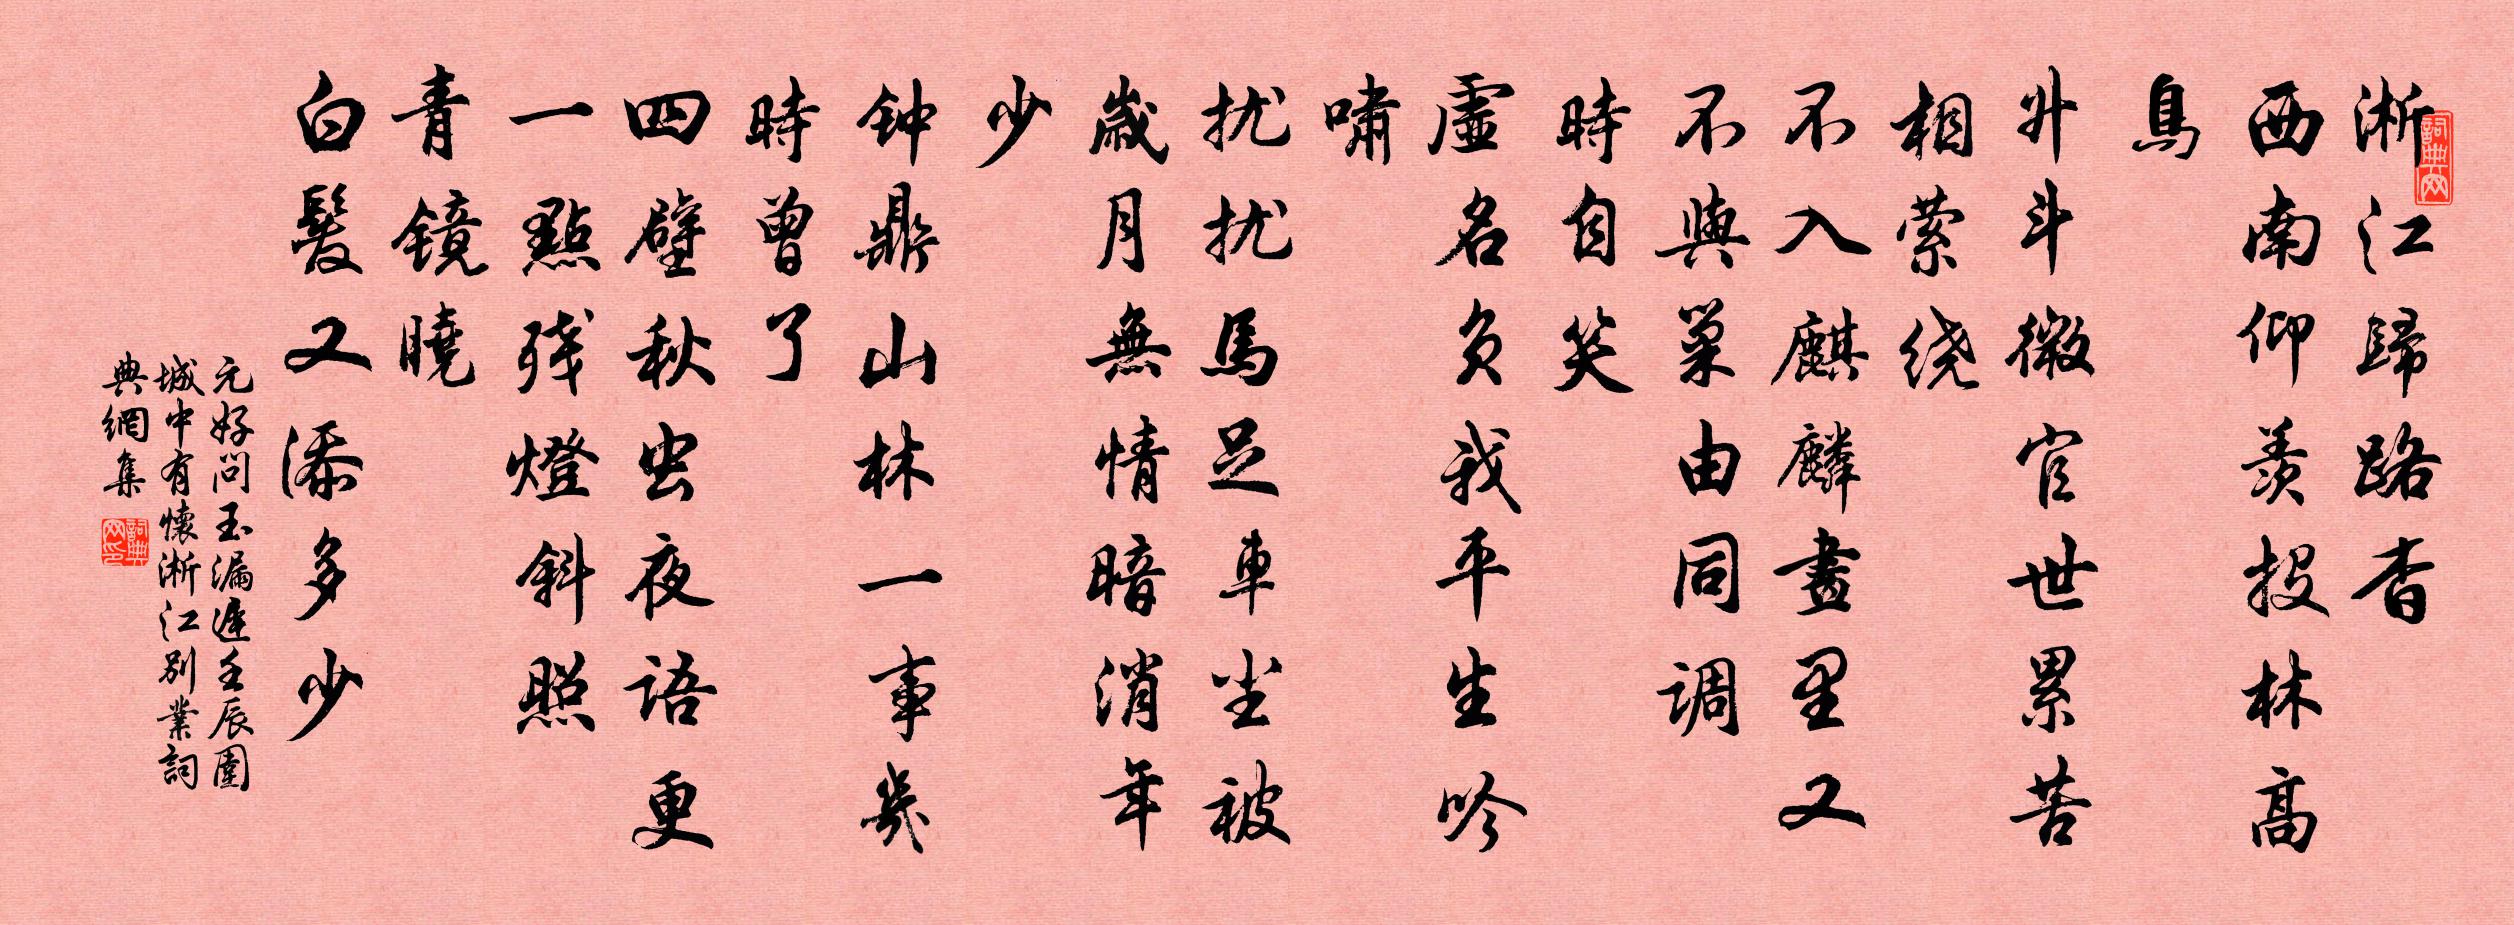 詞典网
淅江歸路杳
西南仰羨投林高
鳥
升斗微官世累苦
相萦绕
不入麒麟畫里又
不與巢由同調
時自笑
虛名负我平生吟
嘯
扰扰馬足車尘被
歲月無情暗消年
少
钟鼎山林一事幾
時曾了
四壁秋虫夜語更
一點残燈斜照
青鏡曉
白髮又添多少
元好問玉漏遲壬辰圍
城中有懷淅江別業詞
典網集
詞典网印